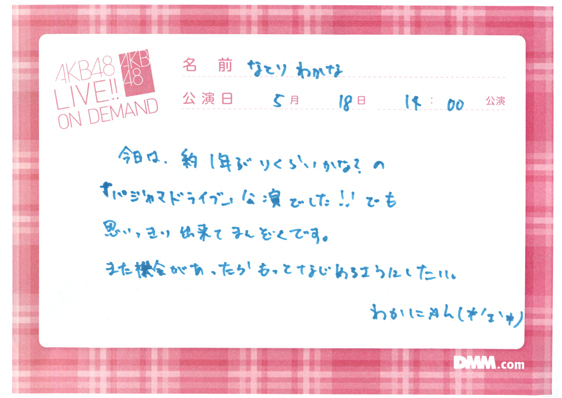 AKB48
LIVE!!
ON DEMAND
AKB
48
名前 なとり わかな
公演日 5月 18日 14:00 公演
今日は、約1年ぶりくらいかな?の
『パジャマドライブ』公演でした!!でも
思いっきり出来てまんぞくです。
また機会があったらもっとなじめるようにしたい。
わかにゃん
DMM.com